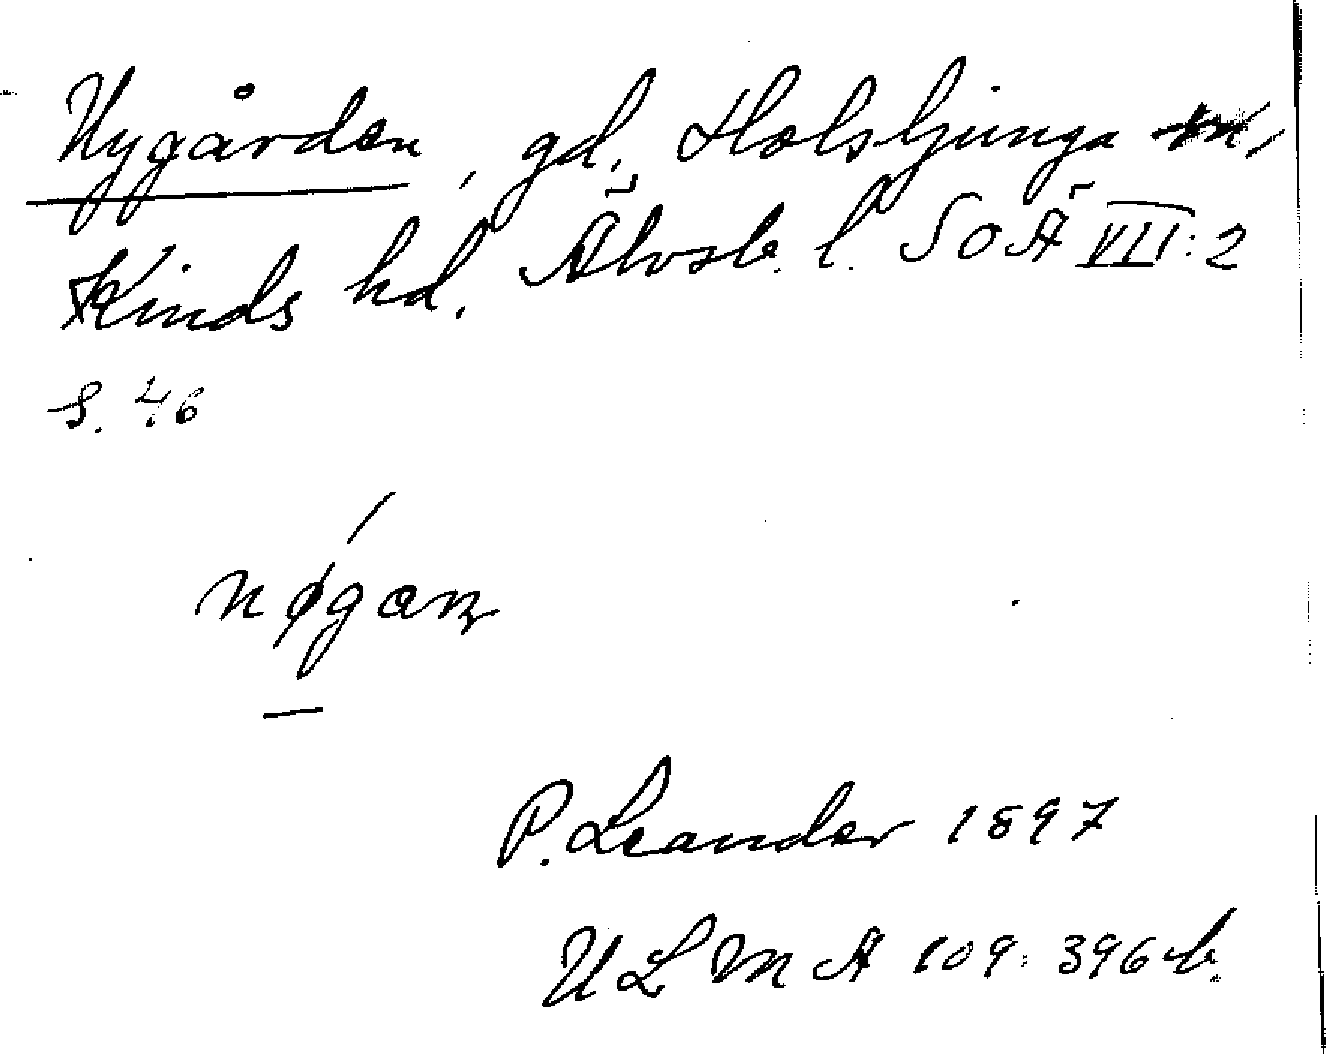 Nygården, gd, Holsljunga sn,
Kinds hd. Älvsb. l. SOÄ VII:2
s. 46
nøgan
P. Leander 1897
ULMA 109:396 b.